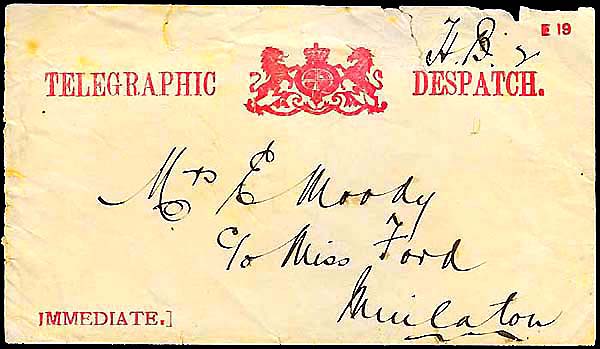 E 19
H. B. 2
TELEGRAPHIC DESPATCH.
Mrs E Moody
c/o Miss Ford
Minlaton
IMMEDIATE.]